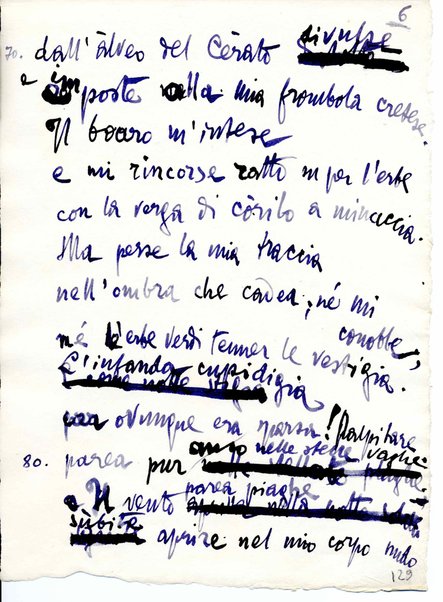 6
70. dall'álveo del Cèrato divulse
e imposte alla mia frombola cretese.
Il boaro m'intese
e mi rincorse ratto su per l'erte
con la verga di còrilo a minaccia.
Ma perse la mia traccia
nell'ombra che cadea; né mi
conobbe,
né l'erbe verdi tenner le vestigia.
L'infanda cupidigia
ovunque era sparsa! Palpitare
nelle stelle vaghe
80. parea pur
parea piaghe
e Il vento
sùbite aprire nel mio corpo nudo
129